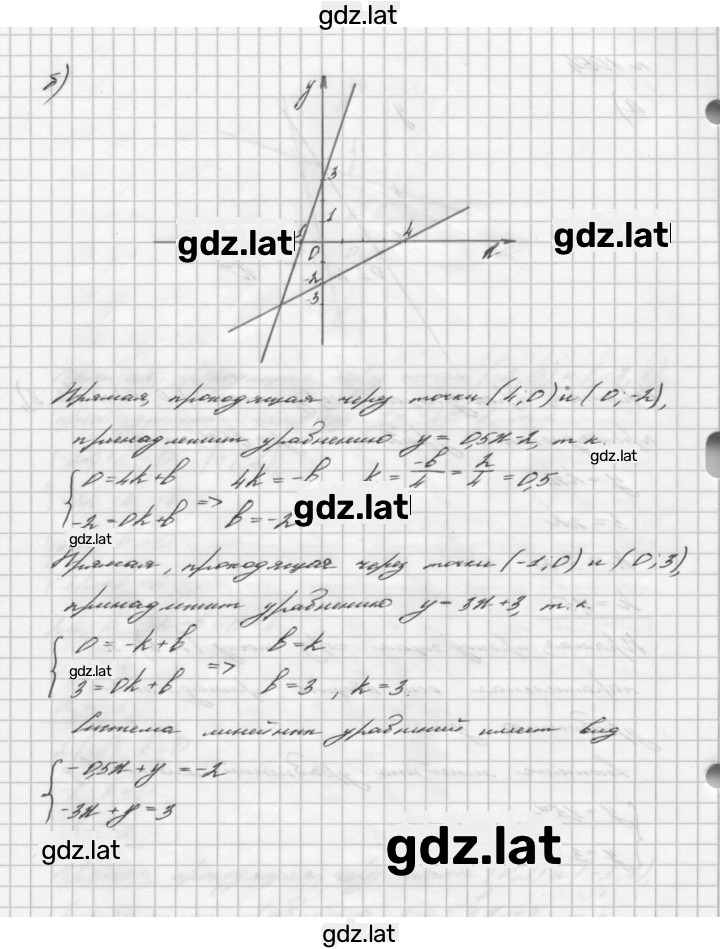 gdz.lat
б)
y
3
1
gdz.lat
-1
4
gdz.lat
0
x
-2
-3
Прямая, проходящая через точки (4; 0) и (0; -2),
принадлежит уравнению y = 0,5x-2, т.к.
gdz.lat
{ 0=4k+b 4k = -b k = -b/4 = 2/4 = 0,5
-2=0k+b => b=-2
gdz.lat
gdz.lat
Прямая, проходящая через точки (-1; 0) и (0; 3),
принадлежит уравнению y=3x+3, т.к.
{ 0=-k+b b=k
gdz.lat
3=0k+b => b=3, k=3.
Система линейных уравнений имеет вид
{ -0,5x+y=-2
-3x+y=3
gdz.lat
gdz.lat
gdz.lat